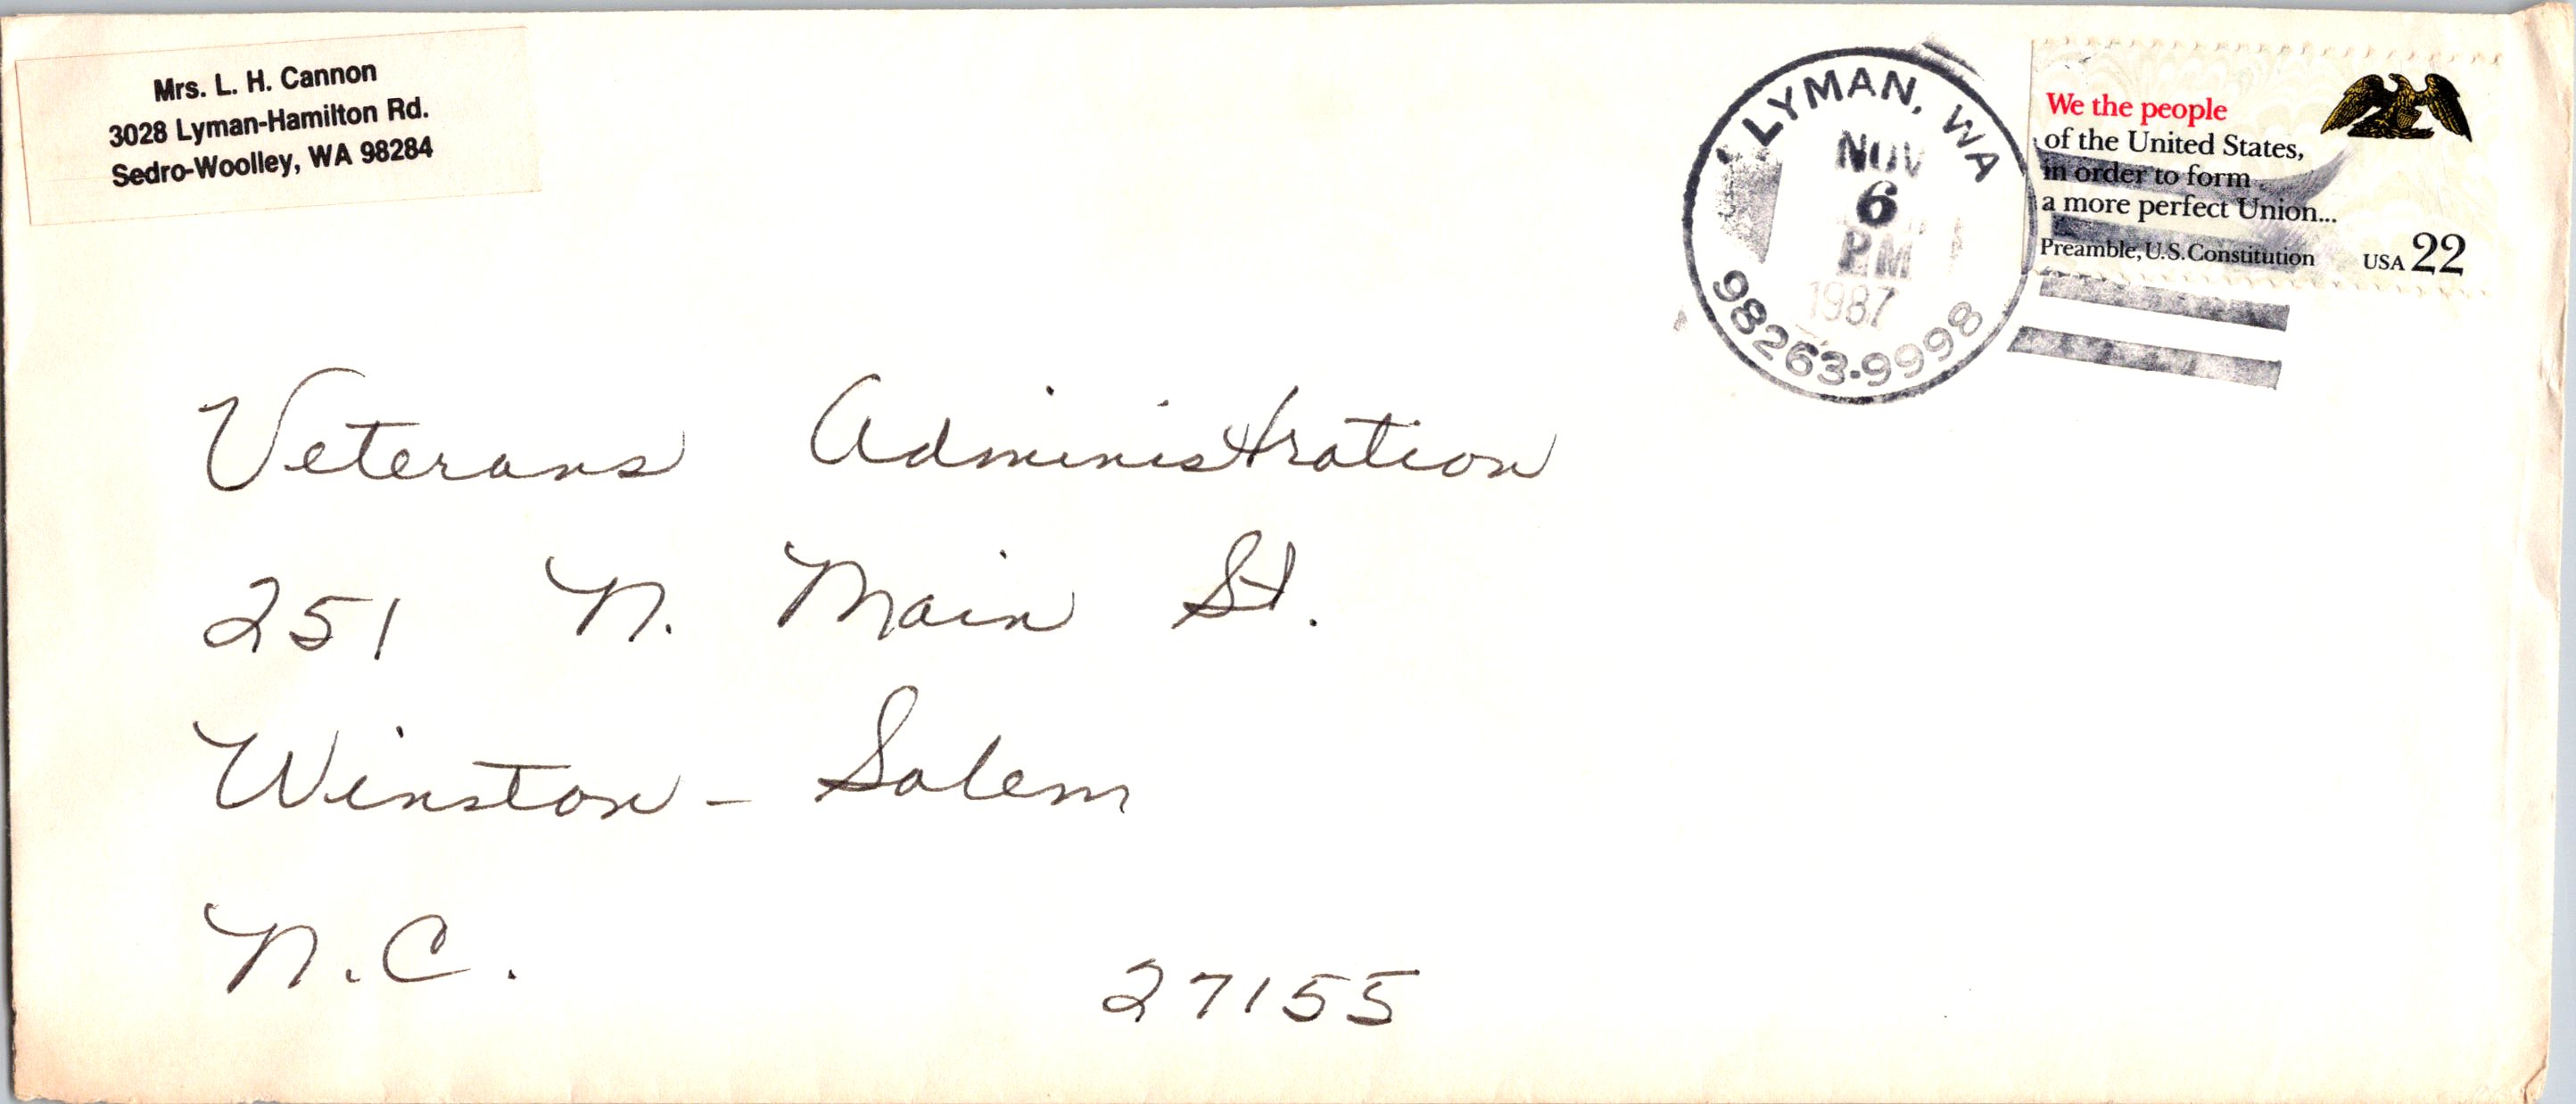 Mrs. L. H. Cannon
3028 Lyman-Hamilton Rd.
Sedro-Woolley, WA 98284
LYMAN, WA
NOV
6
PM
1987
98263-9998
We the people
of the United States,
in order to form
a more perfect Union...
Preamble, U.S. Constitution
USA 22
Veterans Administration
251 N. Main St.
Winston - Salem
N.C. 27155